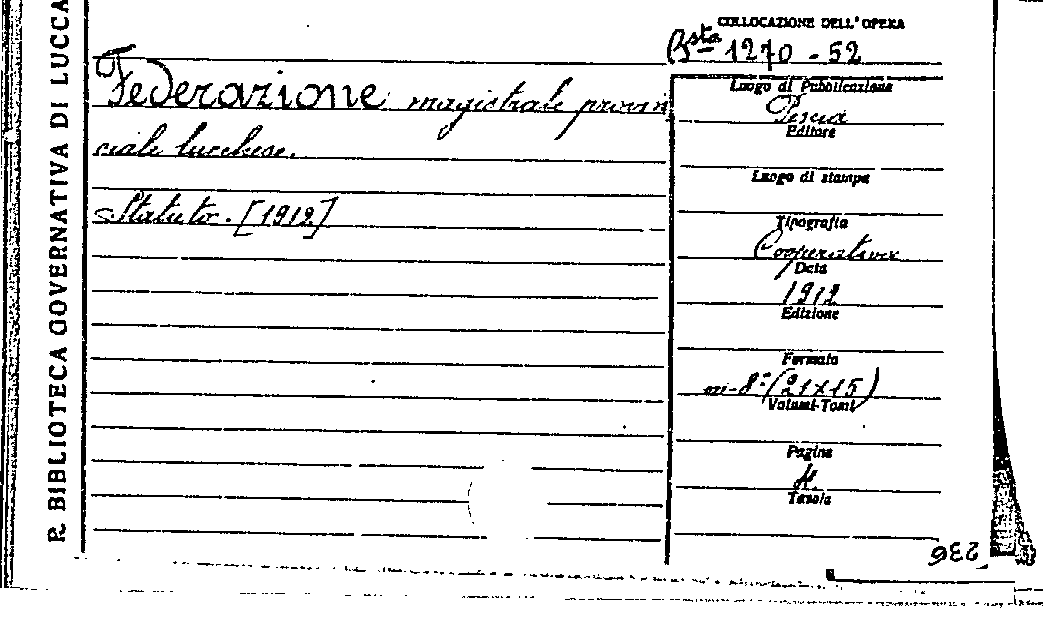 R. BIBLIOTECA GOVERNATIVA DI LUCCA
COLLOCAZIONE DELL'OPERA
Bsta 1270 - 52
Federazione magistrale provin
ciale lucchese.
Statuto. [1912]
Luogo di Pubblicazione
Pescia
Editore
Luogo di stampa
Tipografia
Cooperativa
Data
1912
Edizione
Formato
in-8° (21x15)
Volumi-Tomi
Pagine
4.
Tavole
236